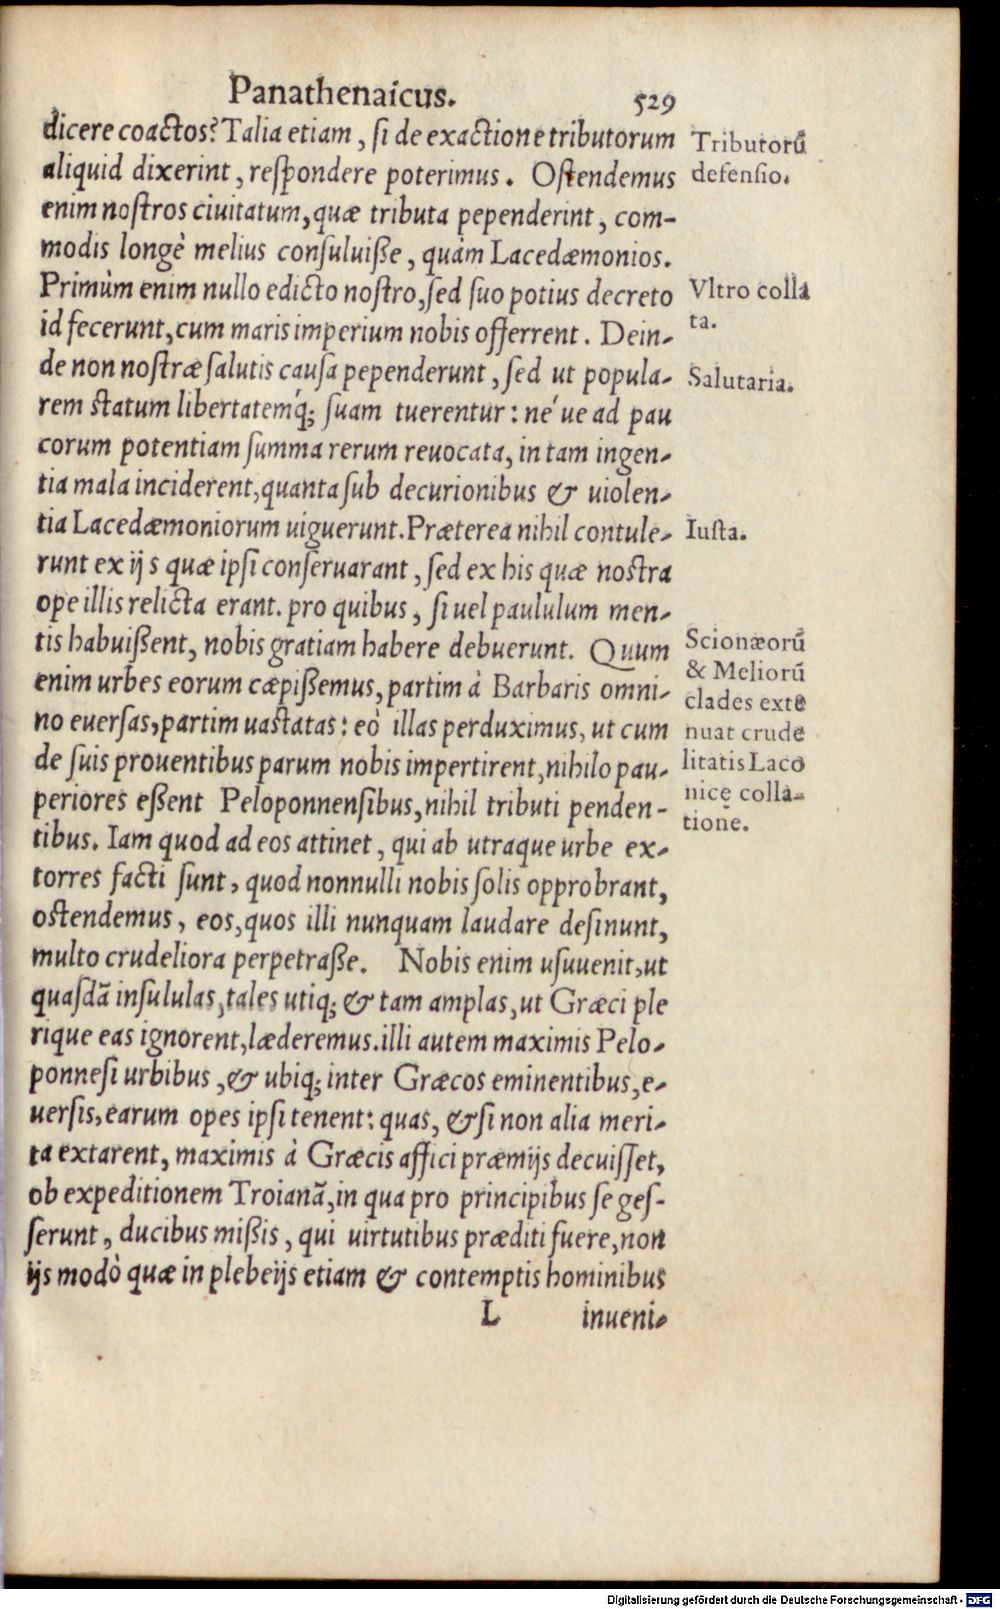 Panathenaicus. 529
dicere coactos? Talia etiam, ſi de exactione tributorum
aliquid dixerint, reſpondere poterimus. Oſtendemus
enim noſtros ciuitatum, quæ tributa pependerint, com-
modis longè melius conſuluiſſe, quàm Lacedæmonios.
Primùm enim nullo edicto noſtro, ſed ſuo potius decreto
id fecerunt, cum maris imperium nobis offerrent. Dein-
de non noſtræ ſalutis cauſa pependerunt, ſed ut popula-
rem ſtatum libertatemq́; ſuam tuerentur: né ue ad pau
corum potentiam ſumma rerum reuocata, in tam ingen-
tia mala inciderent, quanta ſub decurionibus & uiolen-
tia Lacedæmoniorum uiguerunt. Præterea nihil contule-
runt ex ijs quæ ipſi conſeruarant, ſed ex his quæ noſtra
ope illis relicta erant. pro quibus, ſi uel paululum men-
tis habuißent, nobis gratiam habere debuerunt. Quum
enim urbes eorum cæpißemus, partim à Barbaris omni-
no euerſas, partim uaſtatas: eò illas perduximus, ut cum
de ſuis prouentibus parum nobis impertirent, nihilo pau-
periores eßent Peloponnenſibus, nihil tributi penden-
tibus. Iam quod ad eos attinet, qui ab utraque urbe ex-
torres facti ſunt, quod nonnulli nobis ſolis opprobrant,
oſtendemus, eos, quos illi nunquam laudare deſinunt,
multo crudeliora perpetraße. Nobis enim uſuuenit, ut
quaſdā inſululas, tales utiq; & tam amplas, ut Græci ple
rique eas ignorent, læderemus. illi autem maximis Pelo-
ponneſi urbibus, & ubiq; inter Græcos eminentibus, e-
uerſis, earum opes ipſi tenent: quas, & ſi non alia meri-
ta extarent, maximis à Græcis affici præmijs decuiſſet,
ob expeditionem Troianā, in qua pro principibus ſe geſ-
ſerunt, ducibus mißis, qui uirtutibus præditi fuere, non
ijs modò quæ in plebeijs etiam & contemptis hominibus
L inueni-
Tributorū
defenſio.
Vltro colla
ta.
Salutaria.
Iuſta.
Scionæorū
& Meliorū
clades exte
nuat crude
litatis Laco
nicę colla-
tione.
Digitalisierung gefördert durch die Deutsche Forschungsgemeinschaft - DFG